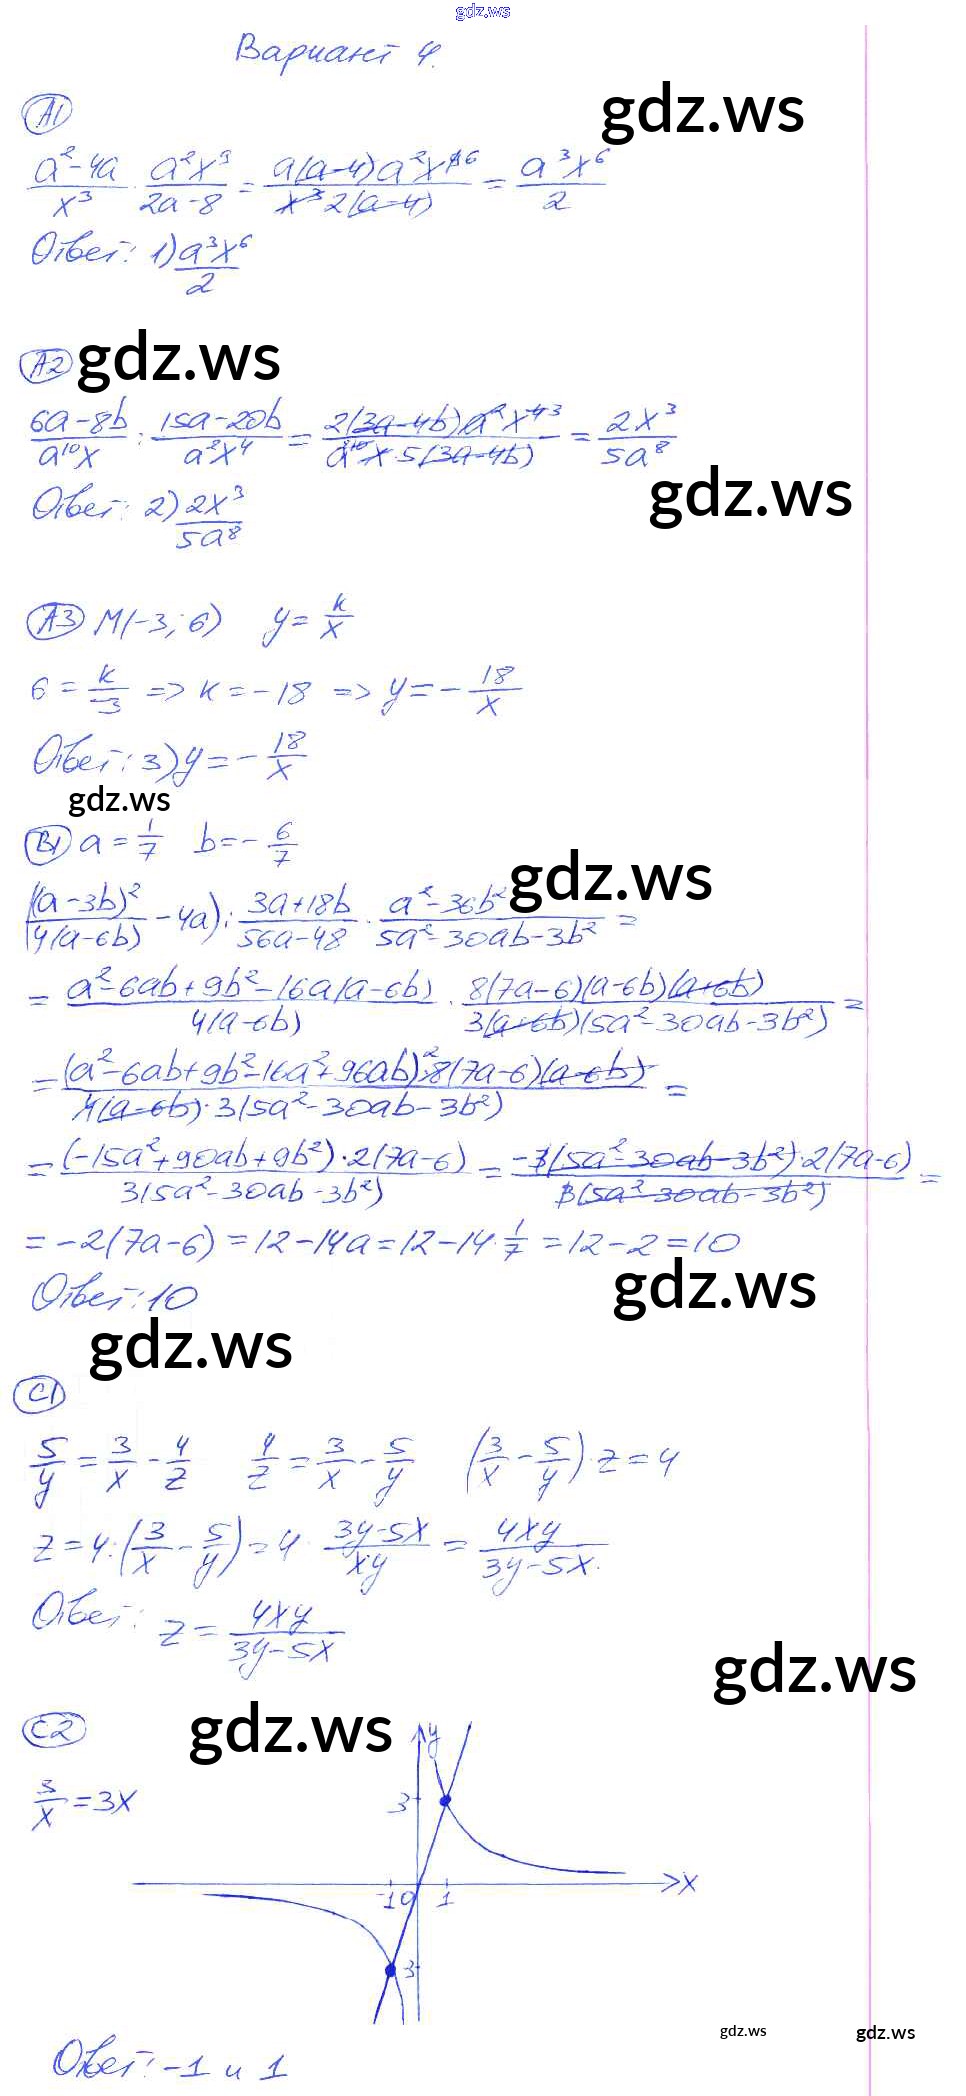 gdz.ws
Вариант 4.
A1
gdz.ws
(a² - 4a)/x³ · (a²x⁹)/(2a - 8) = (a(a-4) a²x⁹ ⁶)/(x³ 2(a-4)) = (a³x⁶)/2
Ответ: 1) (a³x⁶)/2
A2 gdz.ws
(6a - 8b)/(a¹⁰x) : (15a - 20b)/(a²x⁴) = (2(3a - 4b) a²x⁴ ³)/(a¹⁰x · 5(3a - 4b)) = (2x³)/(5a⁸)
gdz.ws
Ответ: 2) (2x³)/(5a⁸)
A3 M(-3; 6) y = k/x
6 = k/-3 => k = -18 => y = -18/x
Ответ: 3) y = -18/x
gdz.ws
B1 a = 1/7 b = -6/7
gdz.ws
((a - 3b)²/(4(a - 6b)) - 4a) : (3a + 18b)/(56a - 48) · (a² - 36b²)/(5a² - 30ab - 3b²) =
= (a² - 6ab + 9b² - 16a(a - 6b))/(4(a - 6b)) · (8(7a - 6)(a - 6b)(a + 6b))/(3(a + 6b)(5a² - 30ab - 3b²)) =
= ((a² - 6ab + 9b² - 16a² + 96ab) ² · 8(7a - 6)(a - 6b))/(4(a - 6b) · 3(5a² - 30ab - 3b²)) =
= ((-15a² + 90ab + 9b²) · 2(7a - 6))/(3(5a² - 30ab - 3b²)) = (-3(5a² - 30ab - 3b²) · 2(7a - 6))/(3(5a² - 30ab - 3b²)) =
= -2(7a - 6) = 12 - 14a = 12 - 14 · 1/7 = 12 - 2 = 10
gdz.ws
Ответ: 10
gdz.ws
C1
5/y = 3/x - 4/z 4/z = 3/x - 5/y (3/x - 5/y) · z = 4
z = 4 : (3/x - 5/y) = 4 · (3y - 5x)/(xy) = (4xy)/(3y - 5x).
Ответ: z = (4xy)/(3y - 5x)
gdz.ws
C2 gdz.ws
y
3/x = 3x
3
x
-1 0 1
3
gdz.ws
gdz.ws
Ответ: -1 и 1